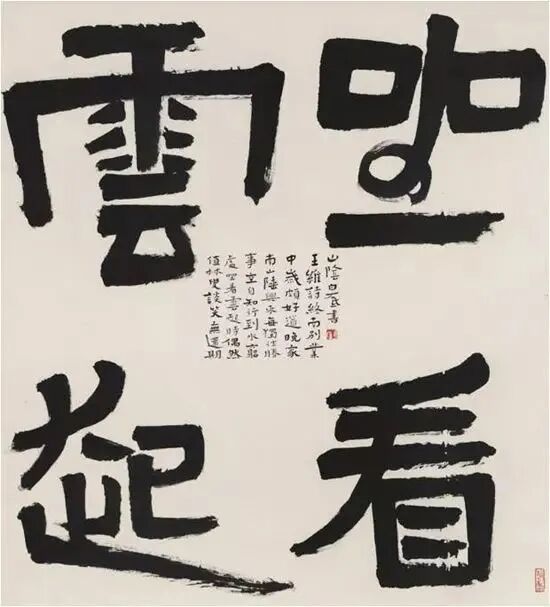 坐看
雲起
山陰白砥書
王維詩終南别業
中歲頗好道晚家
南山陲興來每獨往勝
事空自知行到水窮
處坐看雲起時偶然
值林叟談笑無還期